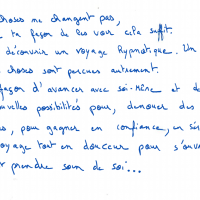 choses ne changent pas,
ta façon de les voir cela suffit.
découvrir un voyage Hypnotique. Un
choses sont perçues autrement.
façon d'avancer avec soi-même et de
nouvelles possibilités pour, dénouer des
, pour gagner en confiance, en sér
voyage tout en douceur pour s'ouvr
prendre soin de soi...